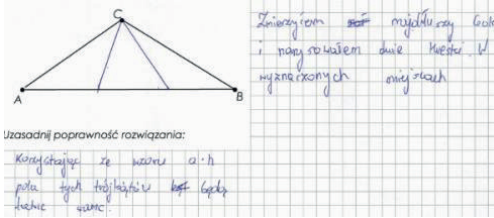 C
A
B
Zmierzyłem najdłuższy bok
i narysowałem dwie kreski. W
wyznaczonych miejscach
Uzasadnij poprawność rozwiązania:
Korzystając ze wzoru a·h
pola tych trójkątów będą